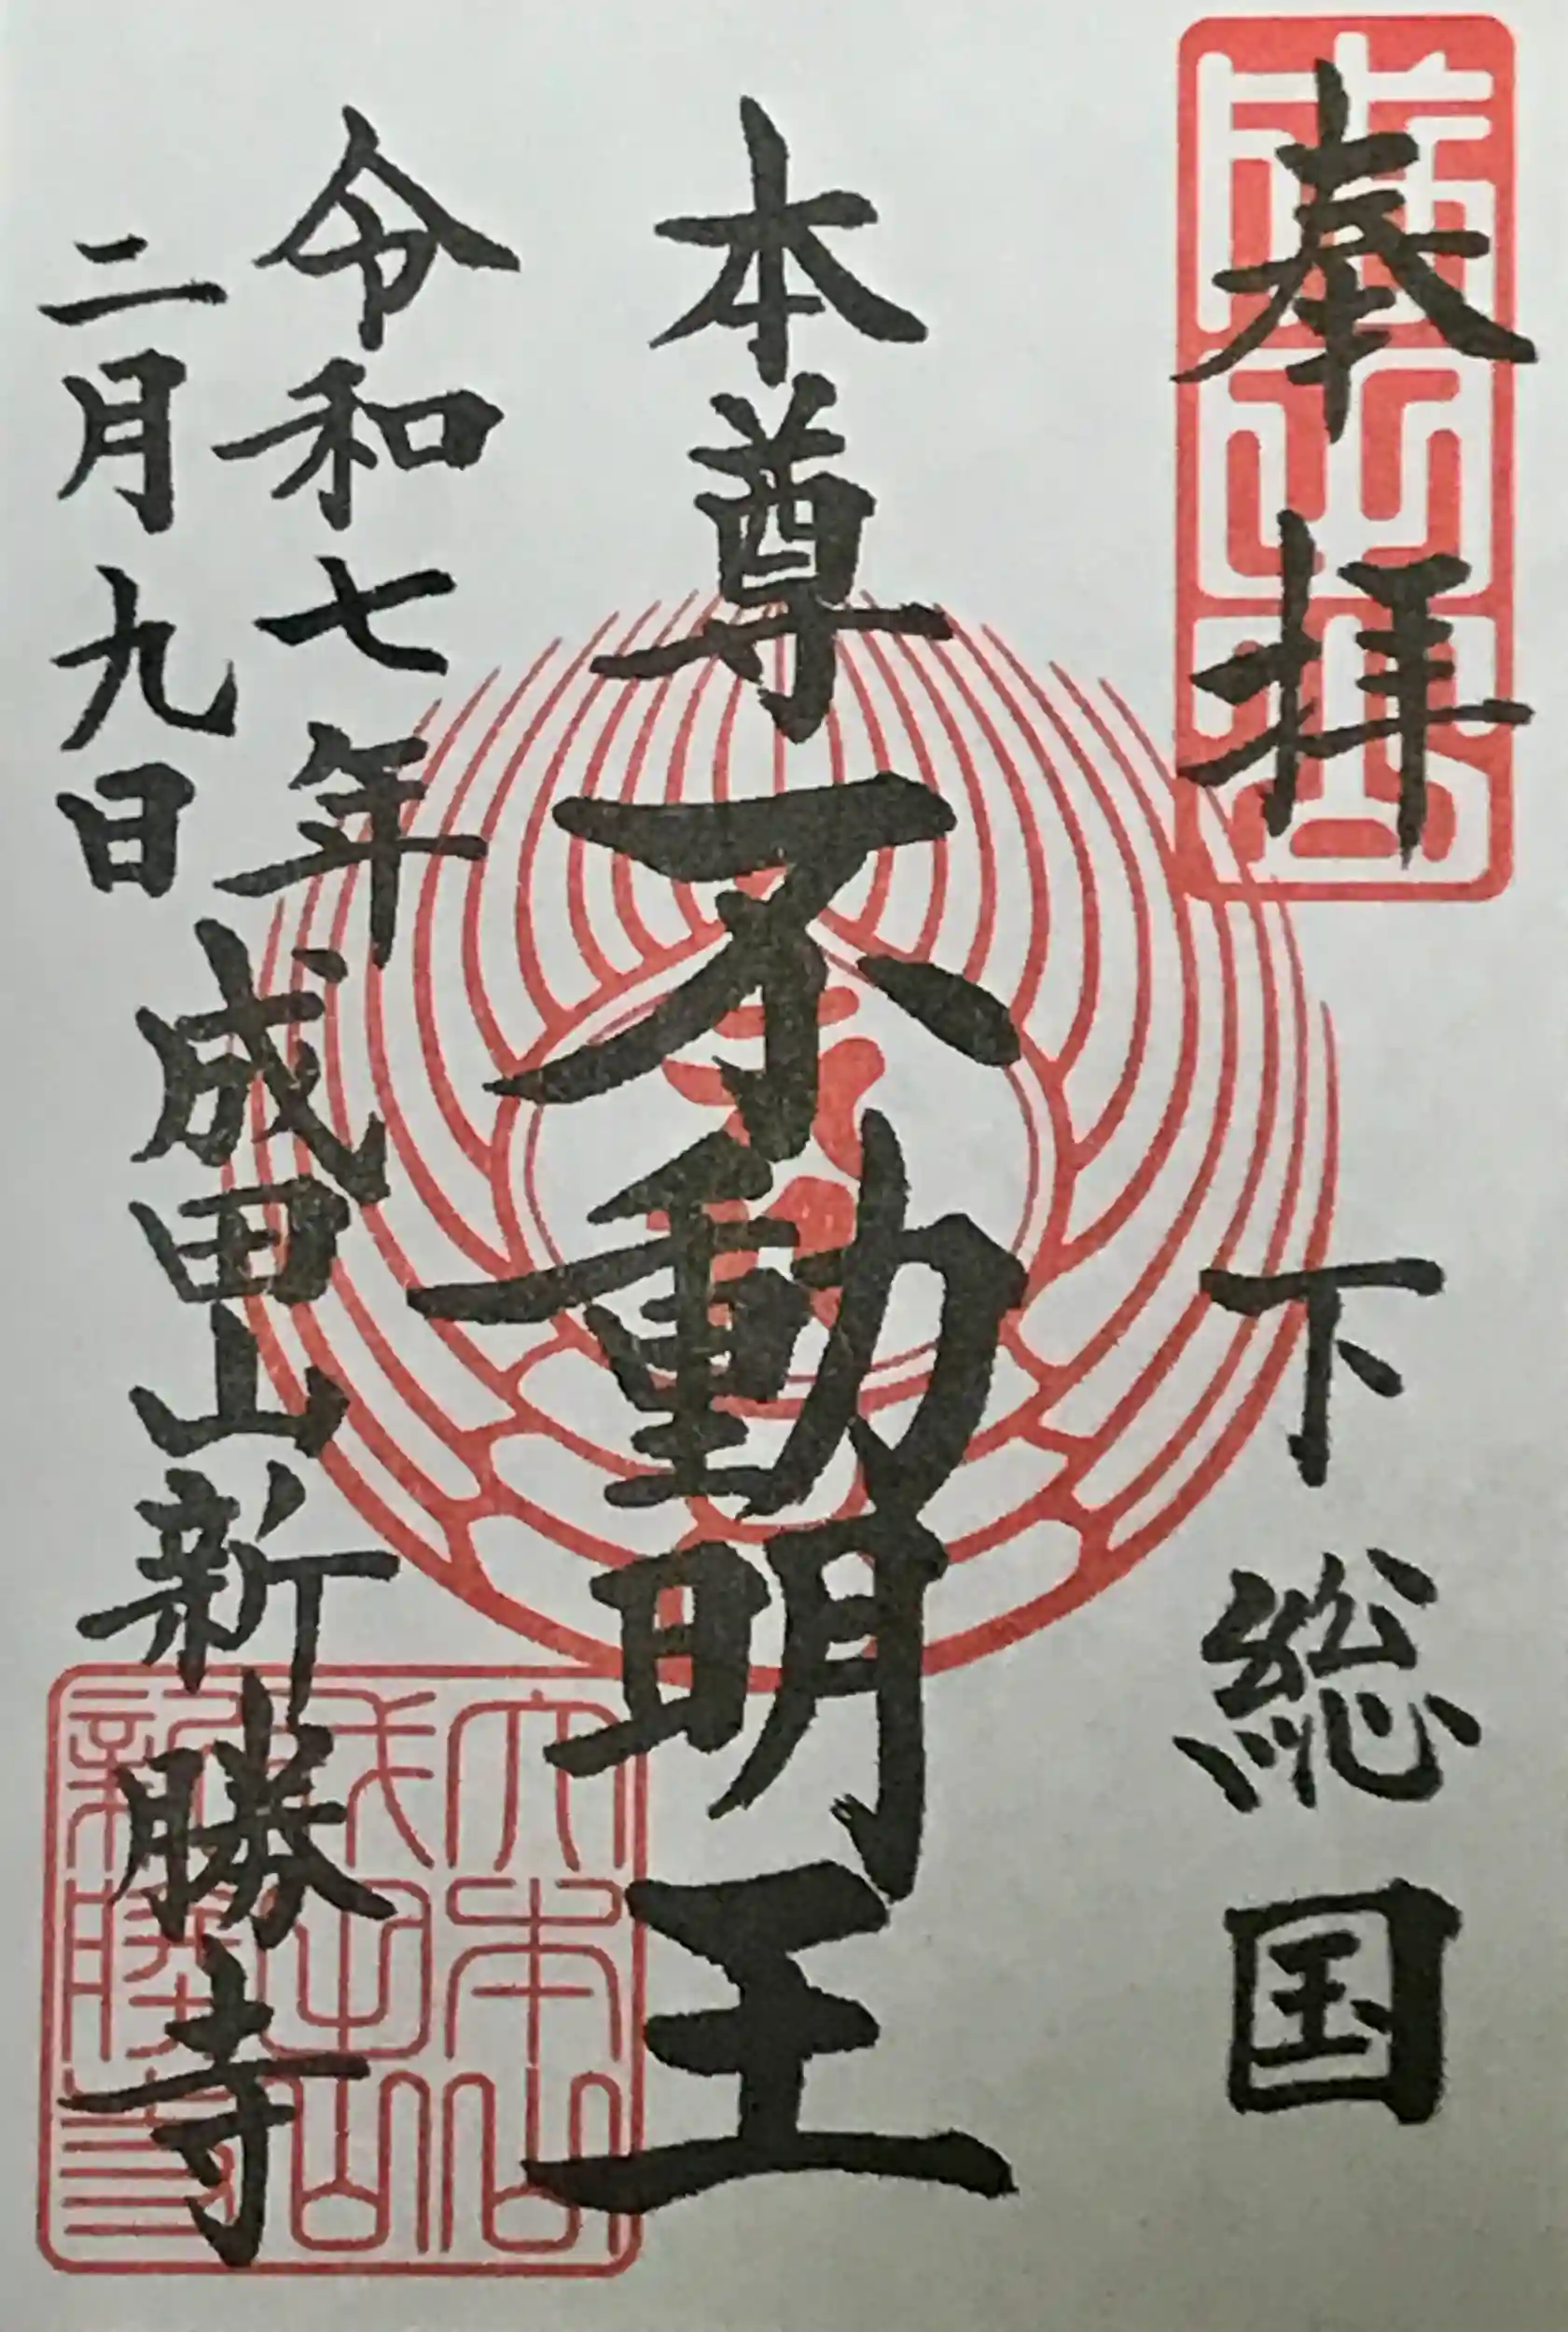 奉拝
下総国
本尊不動明王
令和七年
二月九日
成田山新勝寺
大本山
成田山
新勝寺